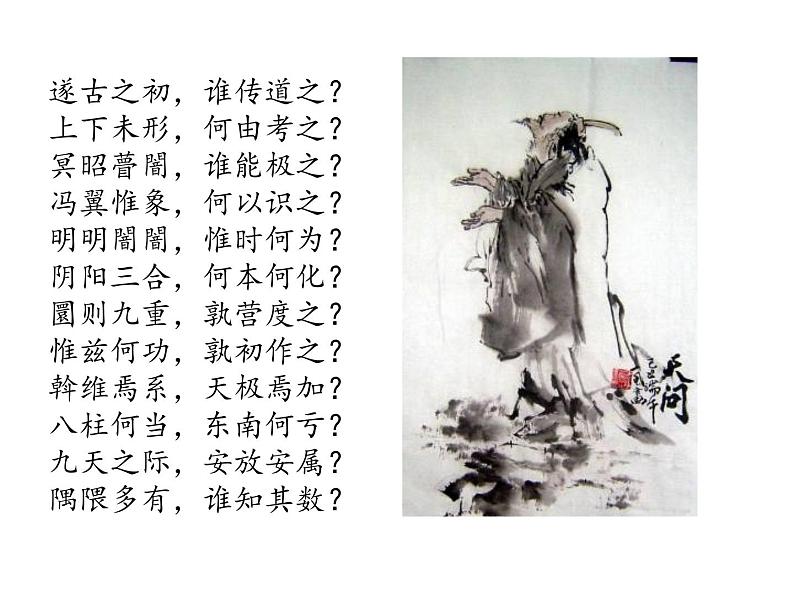 遂古之初，谁传道之？
上下未形，何由考之？
冥昭瞢闇，谁能极之？
冯翼惟象，何以识之？
明明闇闇，惟时何为？
阴阳三合，何本何化？
圜则九重，孰营度之？
惟兹何功，孰初作之？
斡维焉系，天极焉加？
八柱何当，东南何亏？
九天之际，安放安属？
隅隈多有，谁知其数？
天问
己丑端午